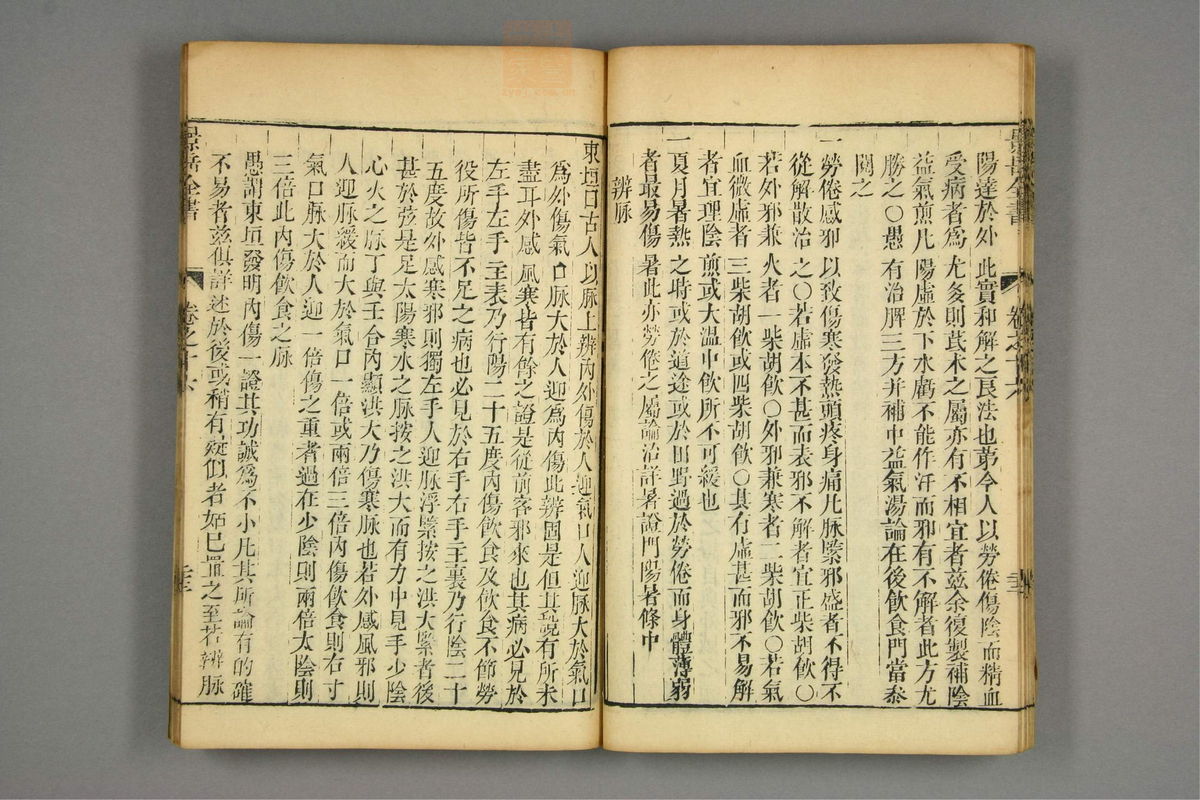 陽達於外此實和解之良法也第今人以勞倦傷陰而精血
受病者爲尤多則芪术之屬亦有不相宜者兹余復製補陰
益氣煎凡陽虛於下水虧不能作汗而邪有不解者此方尤
勝之○愚有治脾三方并補中益氣湯論在後飲食門當叅
閱之
一勞倦感邪以致傷寒發熱頭疼身痛凡脉緊邪盛者不得不
從解散治之○若虛本不甚而表邪不解者宜正柴胡飲○
若外邪兼火者一柴胡飲○外邪兼寒者二柴胡飲○若氣
血微虛者三柴胡飲或四柴胡飲○其有虛甚而邪不易解
者宜理陰煎或大溫中飲所不可緩也
一夏月暑熱之時或於道途或於田野過於勞倦而身體薄弱
者最易傷暑此亦勞倦之屬論治詳暑證門陽暑條中
辨脉
東垣曰古人以脉上辨内外傷於人迎氣口人迎脉大於氣口
爲外傷氣口脉大於人迎爲内傷此辨固是但其說有所未
盡耳外感風寒皆有餘之證是從前客邪來也其病必見於
左手左手主表乃行陽二十五度内傷飲食及飲食不節勞
役所傷皆不足之病也必見於右手右手主裏乃行陰二十
五度故外感寒邪則獨左手人迎脉浮緊按之洪大緊者後
甚於弦是足太陽寒水之脉按之洪大而有力中見手少陰
心火之脉丁與壬合内顯洪大乃傷寒脉也若外感風邪則
人迎脉緩而大於氣口一倍或兩倍三倍内傷飲食則右寸
氣口脉大於人迎一倍傷之重者過在少陰則兩倍太陰則
三倍此内傷飲食之脉
愚謂東垣發明内傷一證其功誠爲不小凡其所論有的確
不易者兹俱詳述於後或稍有疑似者姑已置之至若辨脉
景岳全書
卷之十六
景岳全書